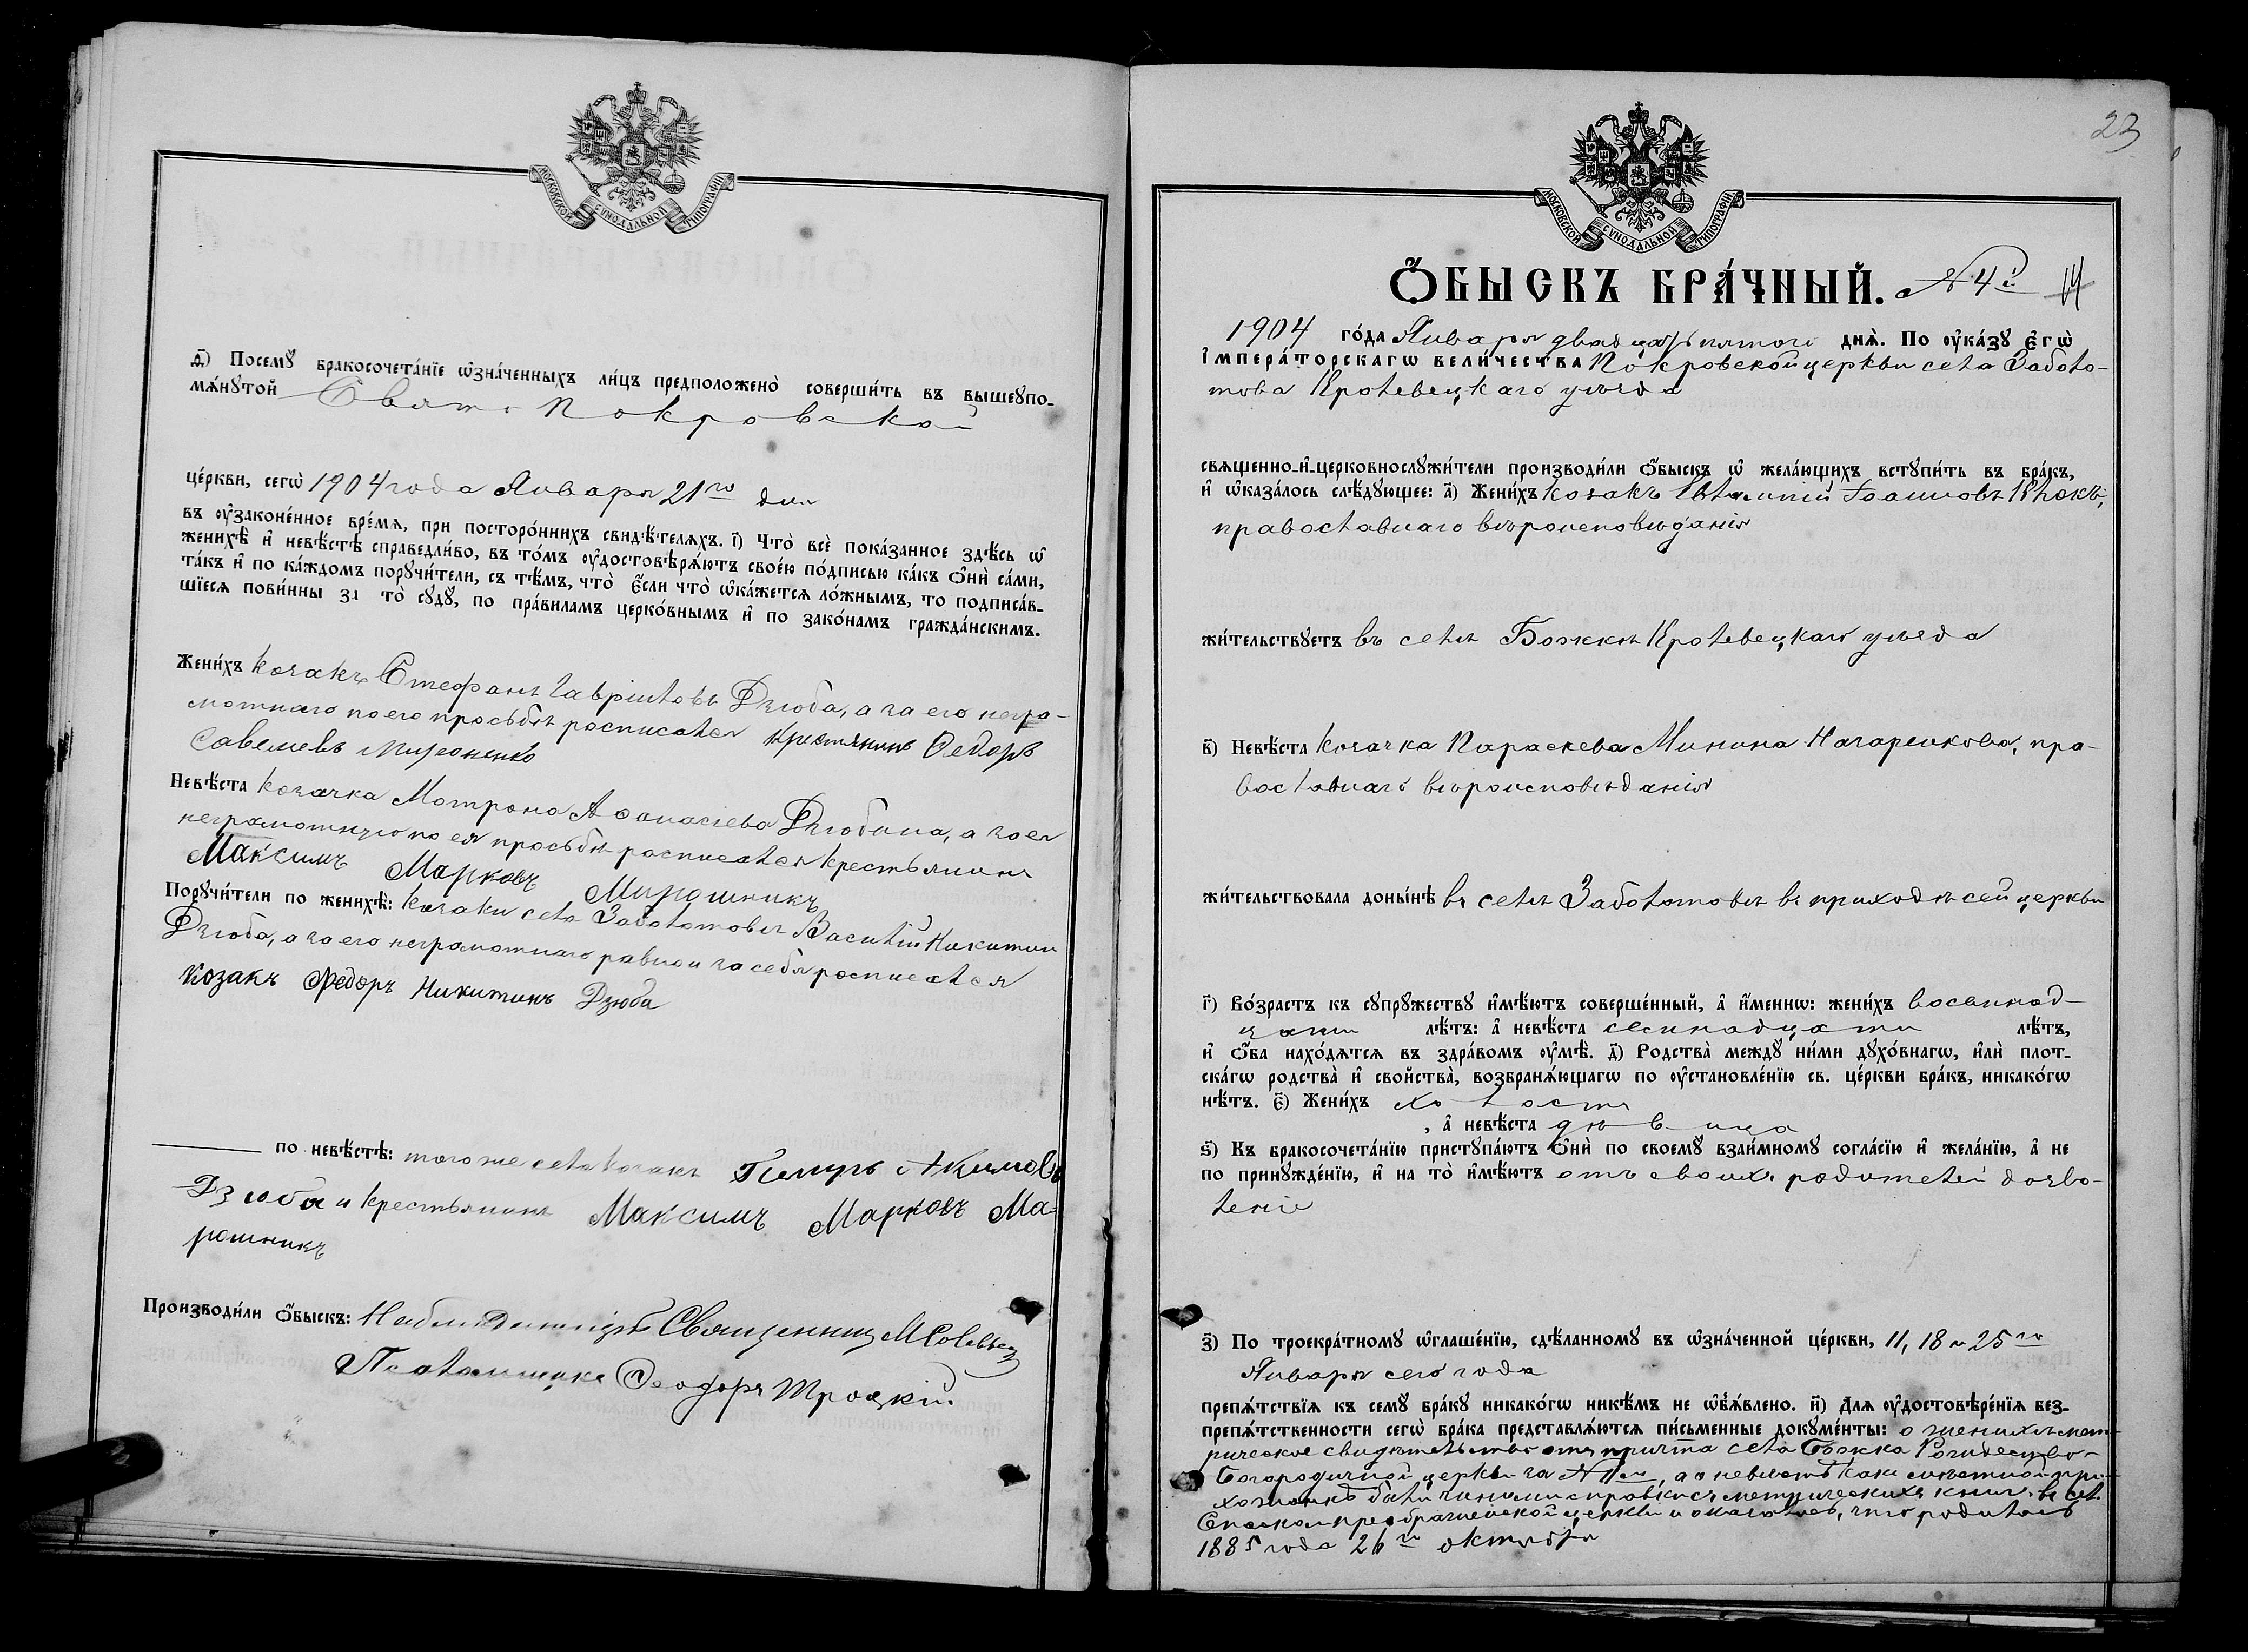 МОСКОВСКОЙ СѴНОДАЛЬНОЙ ТИПОГРАФІИ
д҃) Посемꙋ̀ бракосочета́нїе ѡ҆зна́ченныхъ ли́цъ предположено̀ соверши́ть въ вышеꙋпо-
мѧ́нꙋтой Свято Покровской
це́ркви, сегѡ̀ 1904 года Января 21го дня
въ ᲂу҆зако́ненное вре́мѧ, при посторо́ннихъ свидѣ́телѧхъ. і҃) Что̀ всѐ пока́занное здѣ́сь ѡ҆
женихѣ̀ и҆ невѣ́стѣ справедли́во, въ то́мъ ᲂу҆достовѣрѧ́ютъ свое́ю по́дписью ка́къ ѻ҆нѝ са́ми,
та́къ и҆ по ка́ждомъ порꙋчи́тели, съ тѣ́мъ, что̀ є҆́сли что̀ ѡ҆ка́жетсѧ ло́жнымъ, то подписа́в-
шїесѧ пови́нны за то̀ сꙋдꙋ̀, по пра́виламъ церко́внымъ и҆ по зако́намъ гражда́нскимъ.
Жени́хъ козакъ Стефанъ Гавріиловъ Дзюба, а за его негра-
мотнаго по его просьбѣ росписался крестянинъ Федоръ
Савельевъ Мироненко
Невѣ́ста козачка Мотрона Аѳанасіева Дзюбина, а за ея
неграмотную по ея просьбѣ росписался крестьянинъ
Максимъ Марковъ Мирошникъ
Порꙋчи́тели по женихѣ̀: козаки села Заболотовъ Василій Никитин
Дзюба, а за его неграмотнаго равно и за себя росписался
козакъ Федоръ Никитинъ Дзюба
по невѣ́стѣ: того же села козакъ Петръ Акимовъ
Дзюба и крестьянинъ Максимъ Марковъ Ма-
рошникъ
Производи́ли ѻ҆́быскъ: Священникъ М
Псаломщикъ Ѳеодоръ Троцкій
23
МОСКОВСКОЙ СѴНОДАЛЬНОЙ ТИПОГРАФІИ
Ѻ҆́БЫСКЪ БРА́ЧНЫЙ. № 4й
1904 го́да Января двадцать пятого днѧ̀. По ᲂу҆ка́зꙋ є҆гѡ̀
і҆мпера́торскагѡ вели́чества Покровской церкви села Заболо-
това Кролевецкаго уѣзда
свѧщенно-и҆-церковнослꙋжи́тели производи́ли ѻ҆́быскъ ѡ҆ жела́ющихъ встꙋпи́ть въ бра́къ,
и҆ ѡ҆каза́лось слѣ́дꙋющее: а҃) Жени́хъ козакъ Евѳимій Іоанновъ
православнаго вѣроисповѣданія
жи́тельствꙋетъ въ селѣ Божкѣ Кролевецкаго уѣзда
в҃) Невѣ́ста козачка Параскева Минина Назаренкова, пра-
вославнаго вѣроисповѣданія
жи́тельствовала доны́нѣ въ селѣ Заболотовѣ въ приходѣ сей церкви
г҃) Во́зрастъ къ сꙋпрꙋ́жествꙋ и҆мѣ́ютъ соверше́нный, а҆ и҆́менно: жени́хъ восьмнад-
цати лѣ́тъ: а҆ невѣ́ста семнадцати лѣ́тъ,
и҆ ѻ҆́ба нахо́дѧтсѧ въ здра́вомъ ᲂу҆мѣ̀. д҃) Родства̀ междꙋ̀ ни́ми дꙋхо́внагѡ, и҆лѝ плот-
ска́гѡ родства̀ и҆ свойства̀, возбранѧ́ющагѡ по ᲂу҆становле́нїю св. це́ркви бра́къ, никако́гѡ
нѣ́тъ. є҃) Жени́хъ холостъ
, а҆ невѣ́ста дѣвица
ѕ҃) Къ бракосочета́нїю пристꙋпа́ютъ ѻ҆нѝ по своемꙋ̀ взаи́мномꙋ согла́сїю и҆ жела́нїю, а҆ не
по принꙋжде́нїю, и҆ на то̀ и҆мѣ́ютъ отъ своихъ родителей дозво-
леніе
з҃) По троекра́тномꙋ ѡ҆глаше́нїю, сдѣ́ланномꙋ въ ѡ҆зна́ченной це́ркви, 11, 18 и 25го
Января сего года
препѧ́тствїѧ къ семꙋ̀ бра́кꙋ никако́гѡ никѣ́мъ не ѡ҆б̾ѧ́влено. и҃) Длѧ ᲂу҆достовѣре́нїѧ без-
препѧ́тственности сегѡ̀ бра́ка представлѧ́ютсѧ пи́сьменные докꙋме́нты: о женихѣ мет-
рическое свидѣтельство отъ причта села Божка Рождество-
Богородичной церкви за № , а о невѣстѣ какъ при-
хожанкѣ были справки съ метрическихъ книгъ въ сел.
Спасо-преображенской церкви и оказалось, что родилась
1885 года 26го октября